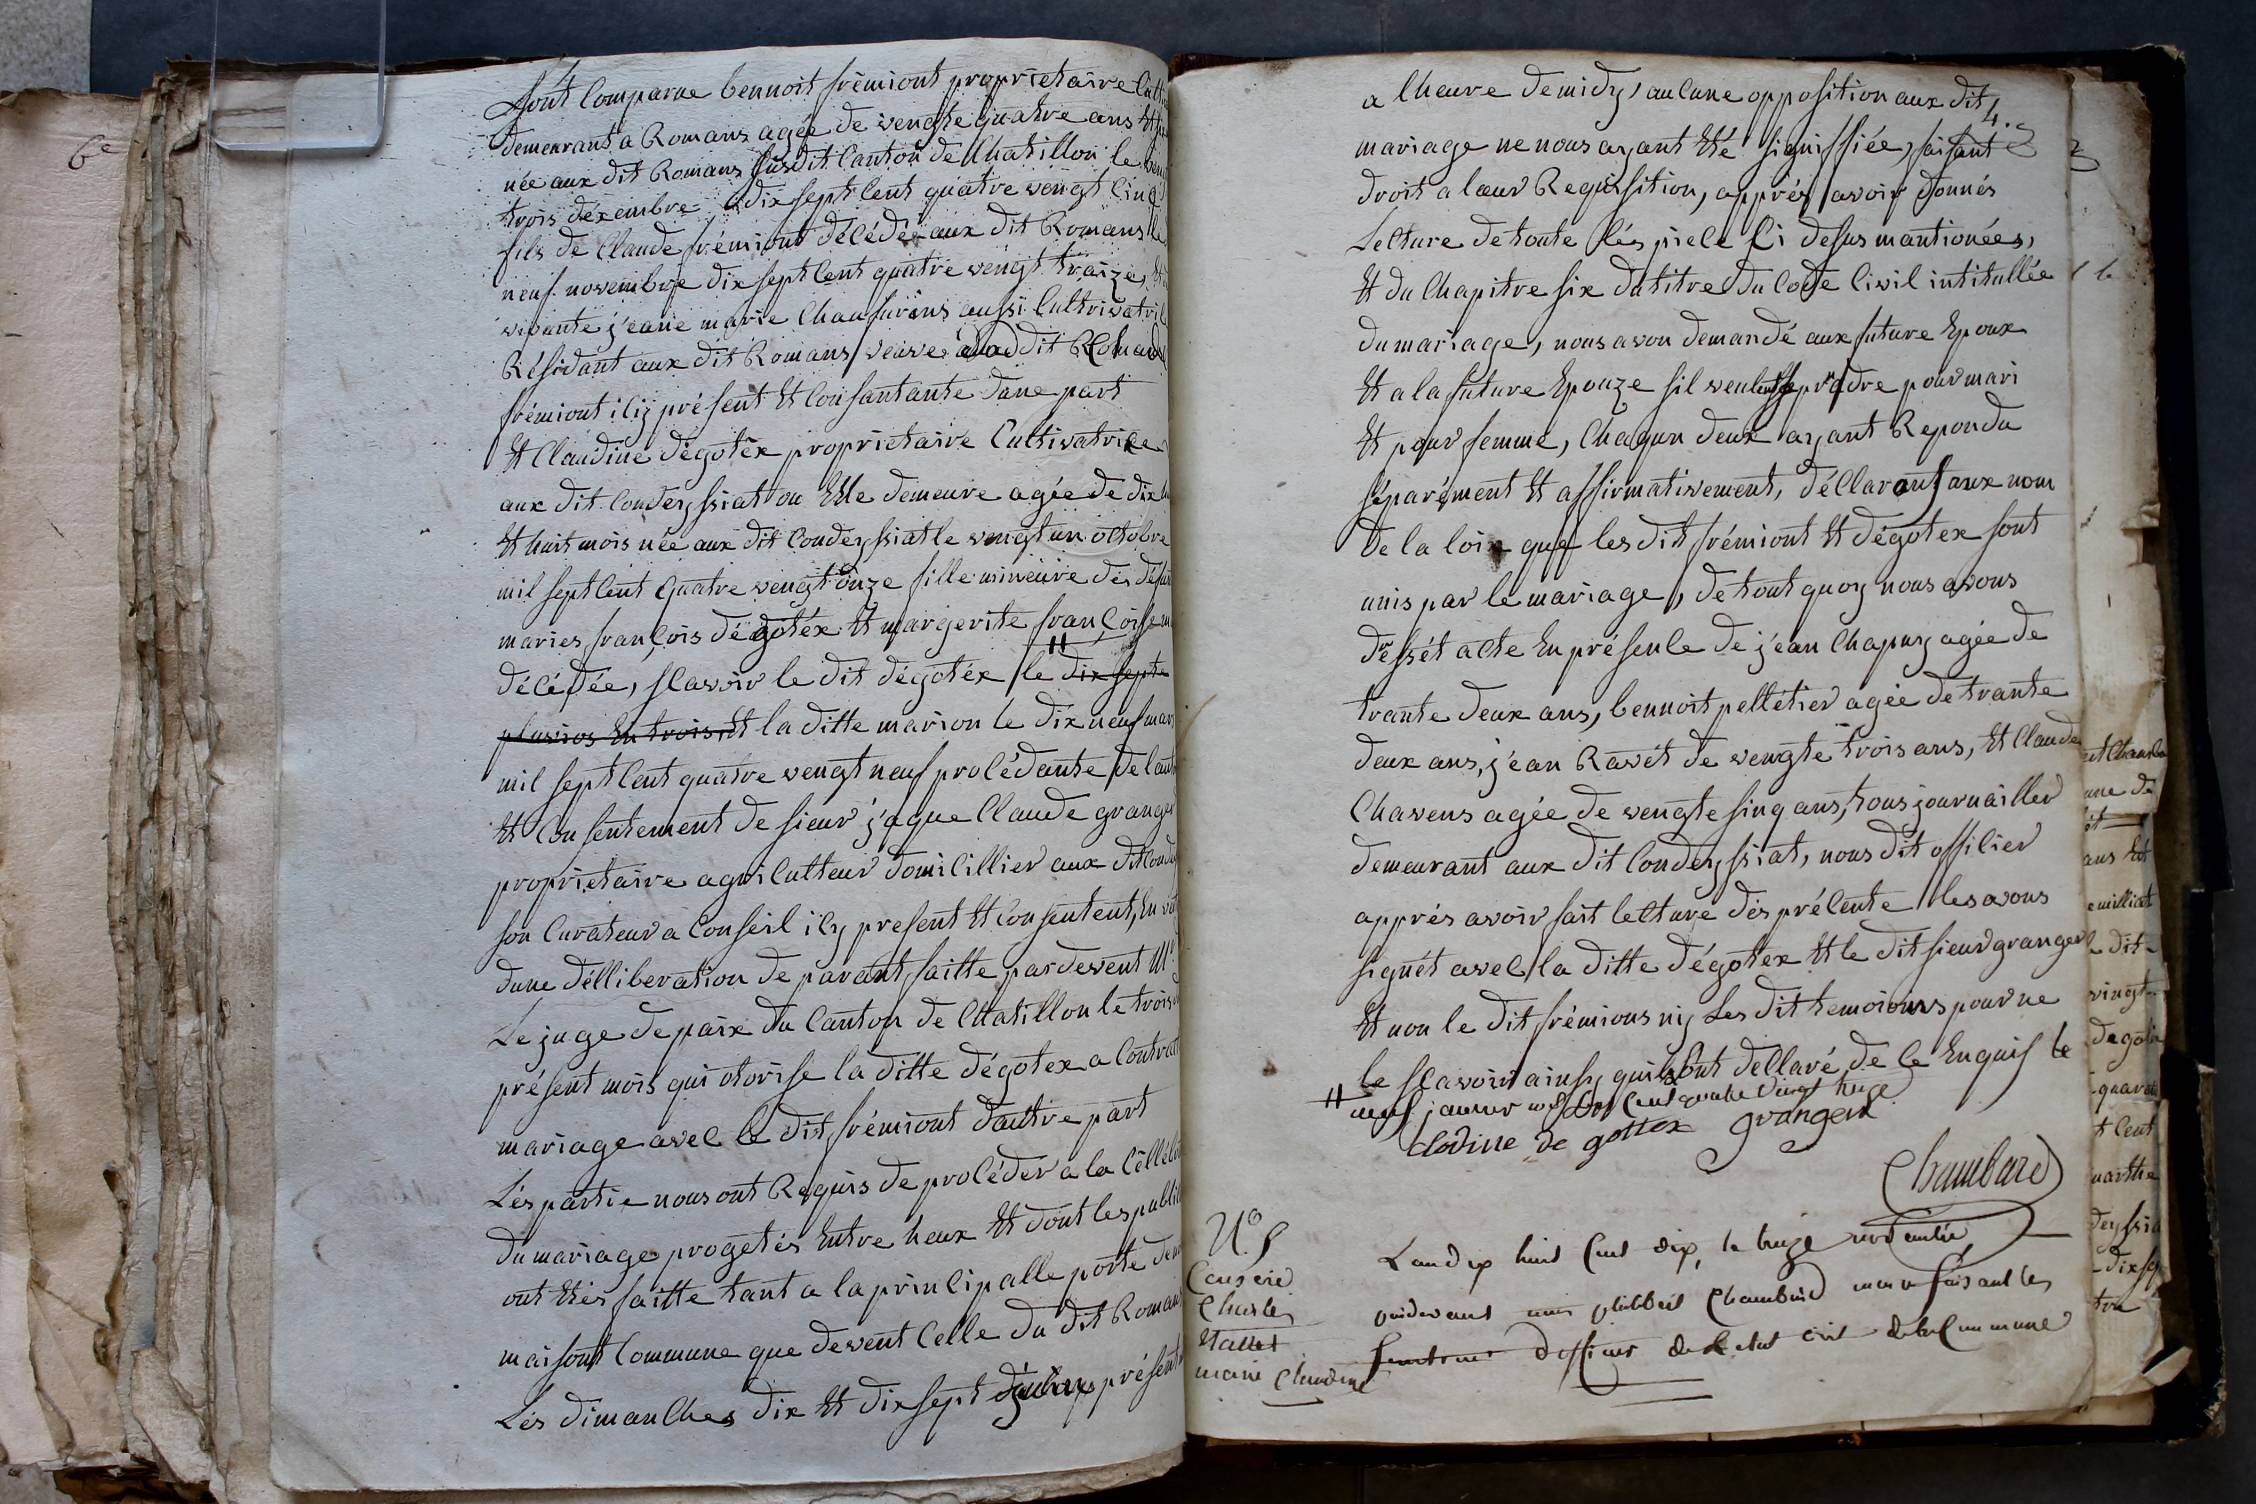 6e
Sont Comparue bennoit frémiont proprietaire Culti
demeurant a Romans agée de vengte quatre ans Et
née aux dit Romans susdit Canton de Chatillon le
trois déxembre dix sept Cent quatre vengt Cinq
fils de Claude frémiont décédé aux dit Romans le
neuf novembre dix sept Cent quatre vengt traize, Et
vivante j'eane marie Chanfurins aussi Cultrivatric
Résidant aux dit Romans veuve dudit Claude
frémiont iciy présent Et Consantante dune part
Et Claudine dégotéx proprietaire Cultivatrice
aux dit Condeyssiat ou Elle demeure agée de dix
Et huit mois née aux dit Condeyssiat le vengt un octobre
mil sept Cent quatre vengt onze fille mineure dés défun
maries françois dégotéx Et margerite françoise m
décédée, scavoir le dit dégotéx le dix septe
pluvios En trois Et la ditte marion le dix neuf mar
mil sept Cent quatre vengt neuf procédante de laut
Et Consentement de sieur j'aque Claude granger
proprietaire agriculteur domicillier aux dit Cond
son Curateur a Conseil icy present Et Consentent, En v
dune délliberation de parant faitte pardevent Mr
Le juge de paix du Canton de Chatillon le trois
présent mois qui otorise la ditte dégotex a Contrat
mariage avec le dit frémiont dautre part
Lés partie nous ont Requis de procéder a la Célléb
du mariage progetés Entre heux Et dont les public
ont Etés faitte tant a la principalle porte de n
maisont Commune que devent Celle du dit Romans
Lés dimanches dix Et dix sept présent
a lheure de midy, aucune opposition aux dit
4.
mariage ne nous ayant Eté signiffiée, faisant
droit a leur Requisition, apprés avoir donnés
Lecture de toute lés piece Ci desus mantionées,
Et du Chapitre six du titre du Code Civil intitullée
du mariage, nous avon demandé aux future Epoux
Et a la future Epouze sil veulent se prendre pour mari
Et pour femme, Chaqun deux ayant Repondu
séparément Et affirmativement, déClaront aux nom
de la loix que les dit frémiont Et dégotex sont
unis par le mariage, de tout quoy nous avons
dréssét acte En présence de j'ean Chapuy agée de
trante deux ans, bennoit pelletier agée de trante
deux ans, j'ean Ravét de vengte trois ans, Et Claude
Chavens agée de vengte sinq ans, tous journailler
demeurant aux dit Condeyssiat, nous dit officier
apprés avoir fait lecture dés précente les avons
signét avec la ditte dégotex Et le dit sieur granger
Et non le dit frémions ny Les dit temoioins pour ne
le scavoir ainsy quils ont dellaré de Ce Enquis le
neuf janvier mil sept Cent quatre vingt treize
Clodine de gottex grangerd
Chambard
No 5
Charles
marie Claudine
L'an dix huit Cent dix, le treize
pardevant nous Chambard maire faisant les
fonctions dofficier de L'etat civil de la Commune